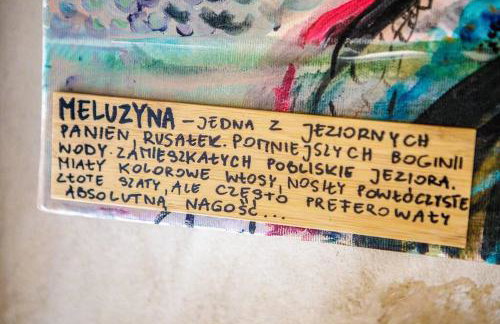 MELUZYNA – JEDNA Z JEZIORNYCH
PANIEN, RUSAŁEK. POMNIEJSZYCH BOGINII
WODY. ZAMIESZKAŁYCH POBLISKIE JEZIORA.
MIAŁY KOLOROWE WŁOSY, NOSIŁY POWŁÓCZYSTE
ZŁOTE SZATY, ALE CZĘSTO PREFEROWAŁY
ABSOLUTNĄ NAGOŚĆ...